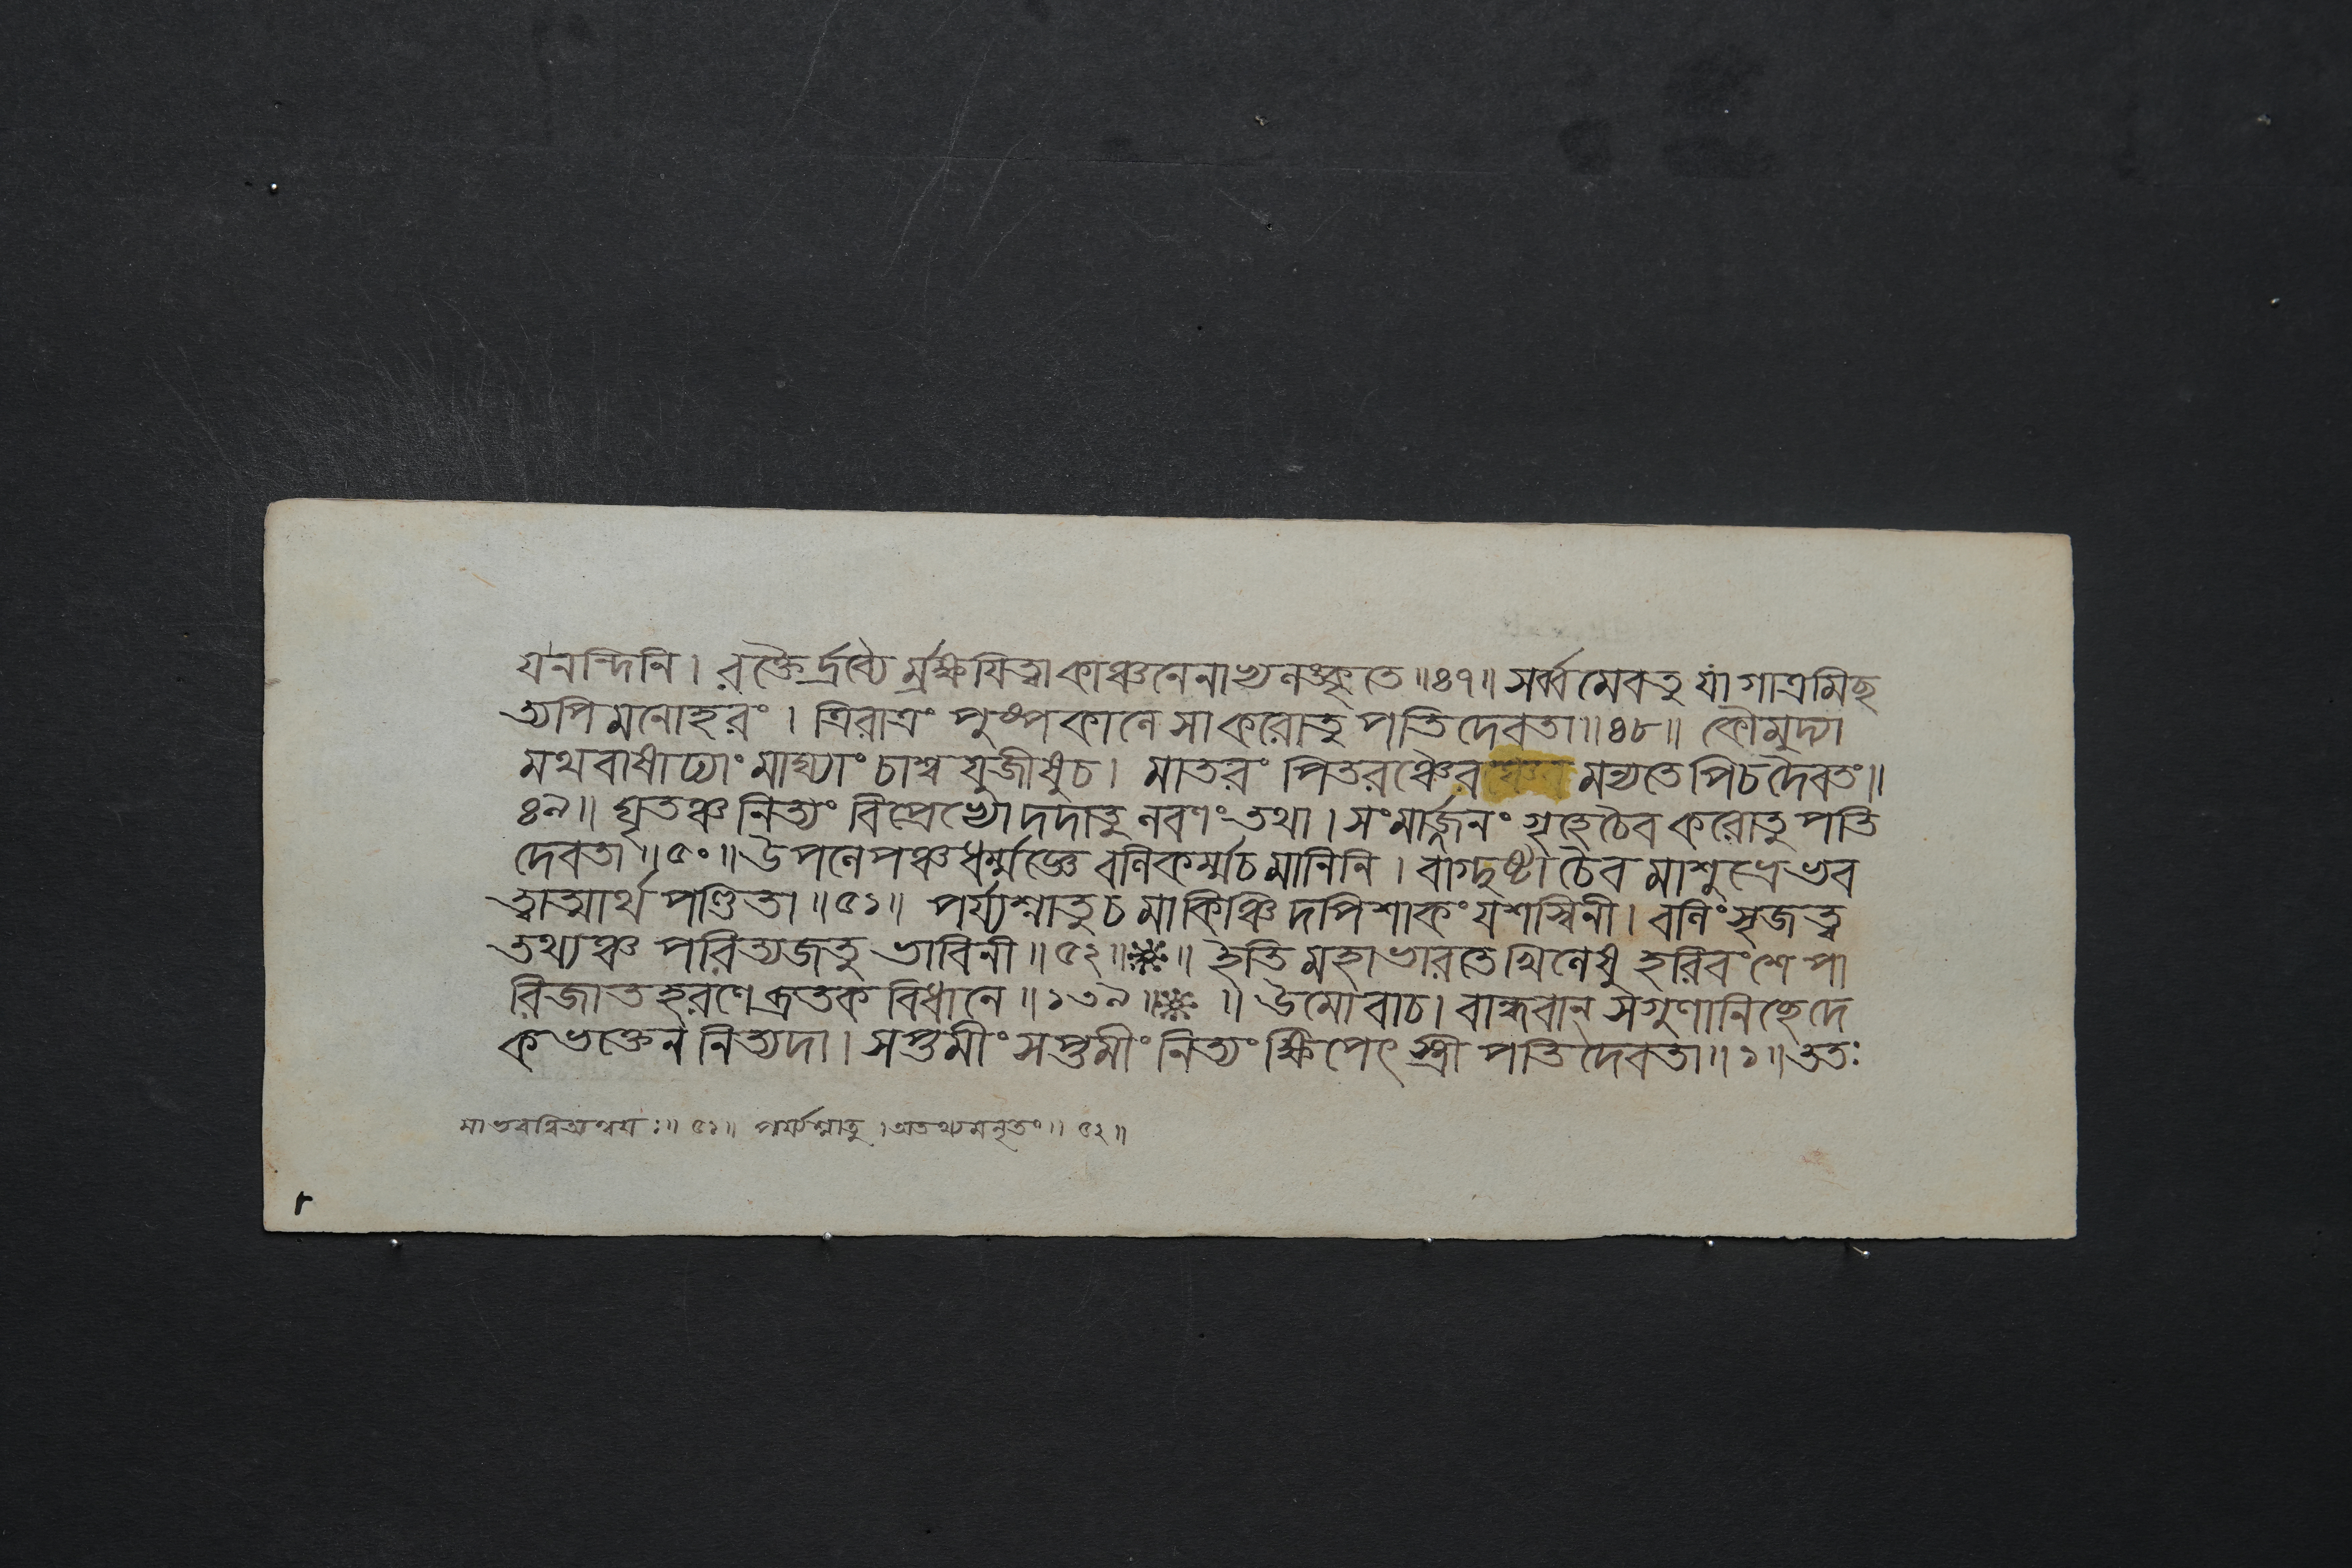 যনন্দিনি। রক্তৈর্দ্রব্যৈর্ম্রক্ষয়িত্বাকাঞ্চনেনাখ্যনঙ্কৃতে॥৪৭॥ সর্ব্বমেবতু যা গাত্রমিছ
ত্যপি মনোহরং। ত্রিরাত্রং পুষ্পকানে সা করোতু পতিদেবতা॥৪৮॥ কৌমুদ্যা
মথবাষাঢ্যাং মাঘ্যাং চাশ্ব যুজীষুচ। মাতরং পিতরঞ্চৈব মন্যতেপিচদৈবতং॥
৪৯॥ ঘৃতঞ্চ নিত্যং বিপ্রেভ্যো দদাতু নবণং তথা। সংমার্জ্জনং গৃহেচৈব করোতু পতি
দেবতা॥৫০॥ উপনেপঞ্চধর্ম্মজ্ঞে বনিকর্ম্মচ মানিনি। বাগ্দুষ্টা চৈব মাশুভ্রেভব
ত্বাত্মার্থ পণ্ডিতা॥৫১॥ পর্য্যশ্নাতুচ মাকিঞ্চিদপিশাকং যশস্বিনী। বনিং সৃজত্ব
তথ্যঞ্চ পরিত্যজতু ভাবিনী॥৫২॥ ॥ ইতি মহাভারতে খিনেষু হরিবংশে পা
রিজাতহরণে ব্রতকবিধানে॥১৩৯॥ ॥ উমোবাচ। বান্ধবান্ সগুণানিচ্ছেদে
কভক্তেন নিত্যদা। সপ্তমীং সপ্তমীং নিত্যং ক্ষিপেৎ স্ত্রী পতিদেবতা॥১॥ততঃ
মাভবত্বিত্যন্বয়ঃ॥৫১॥ পর্য্যশ্নাতু।অতথ্যমনৃতং॥৫২॥